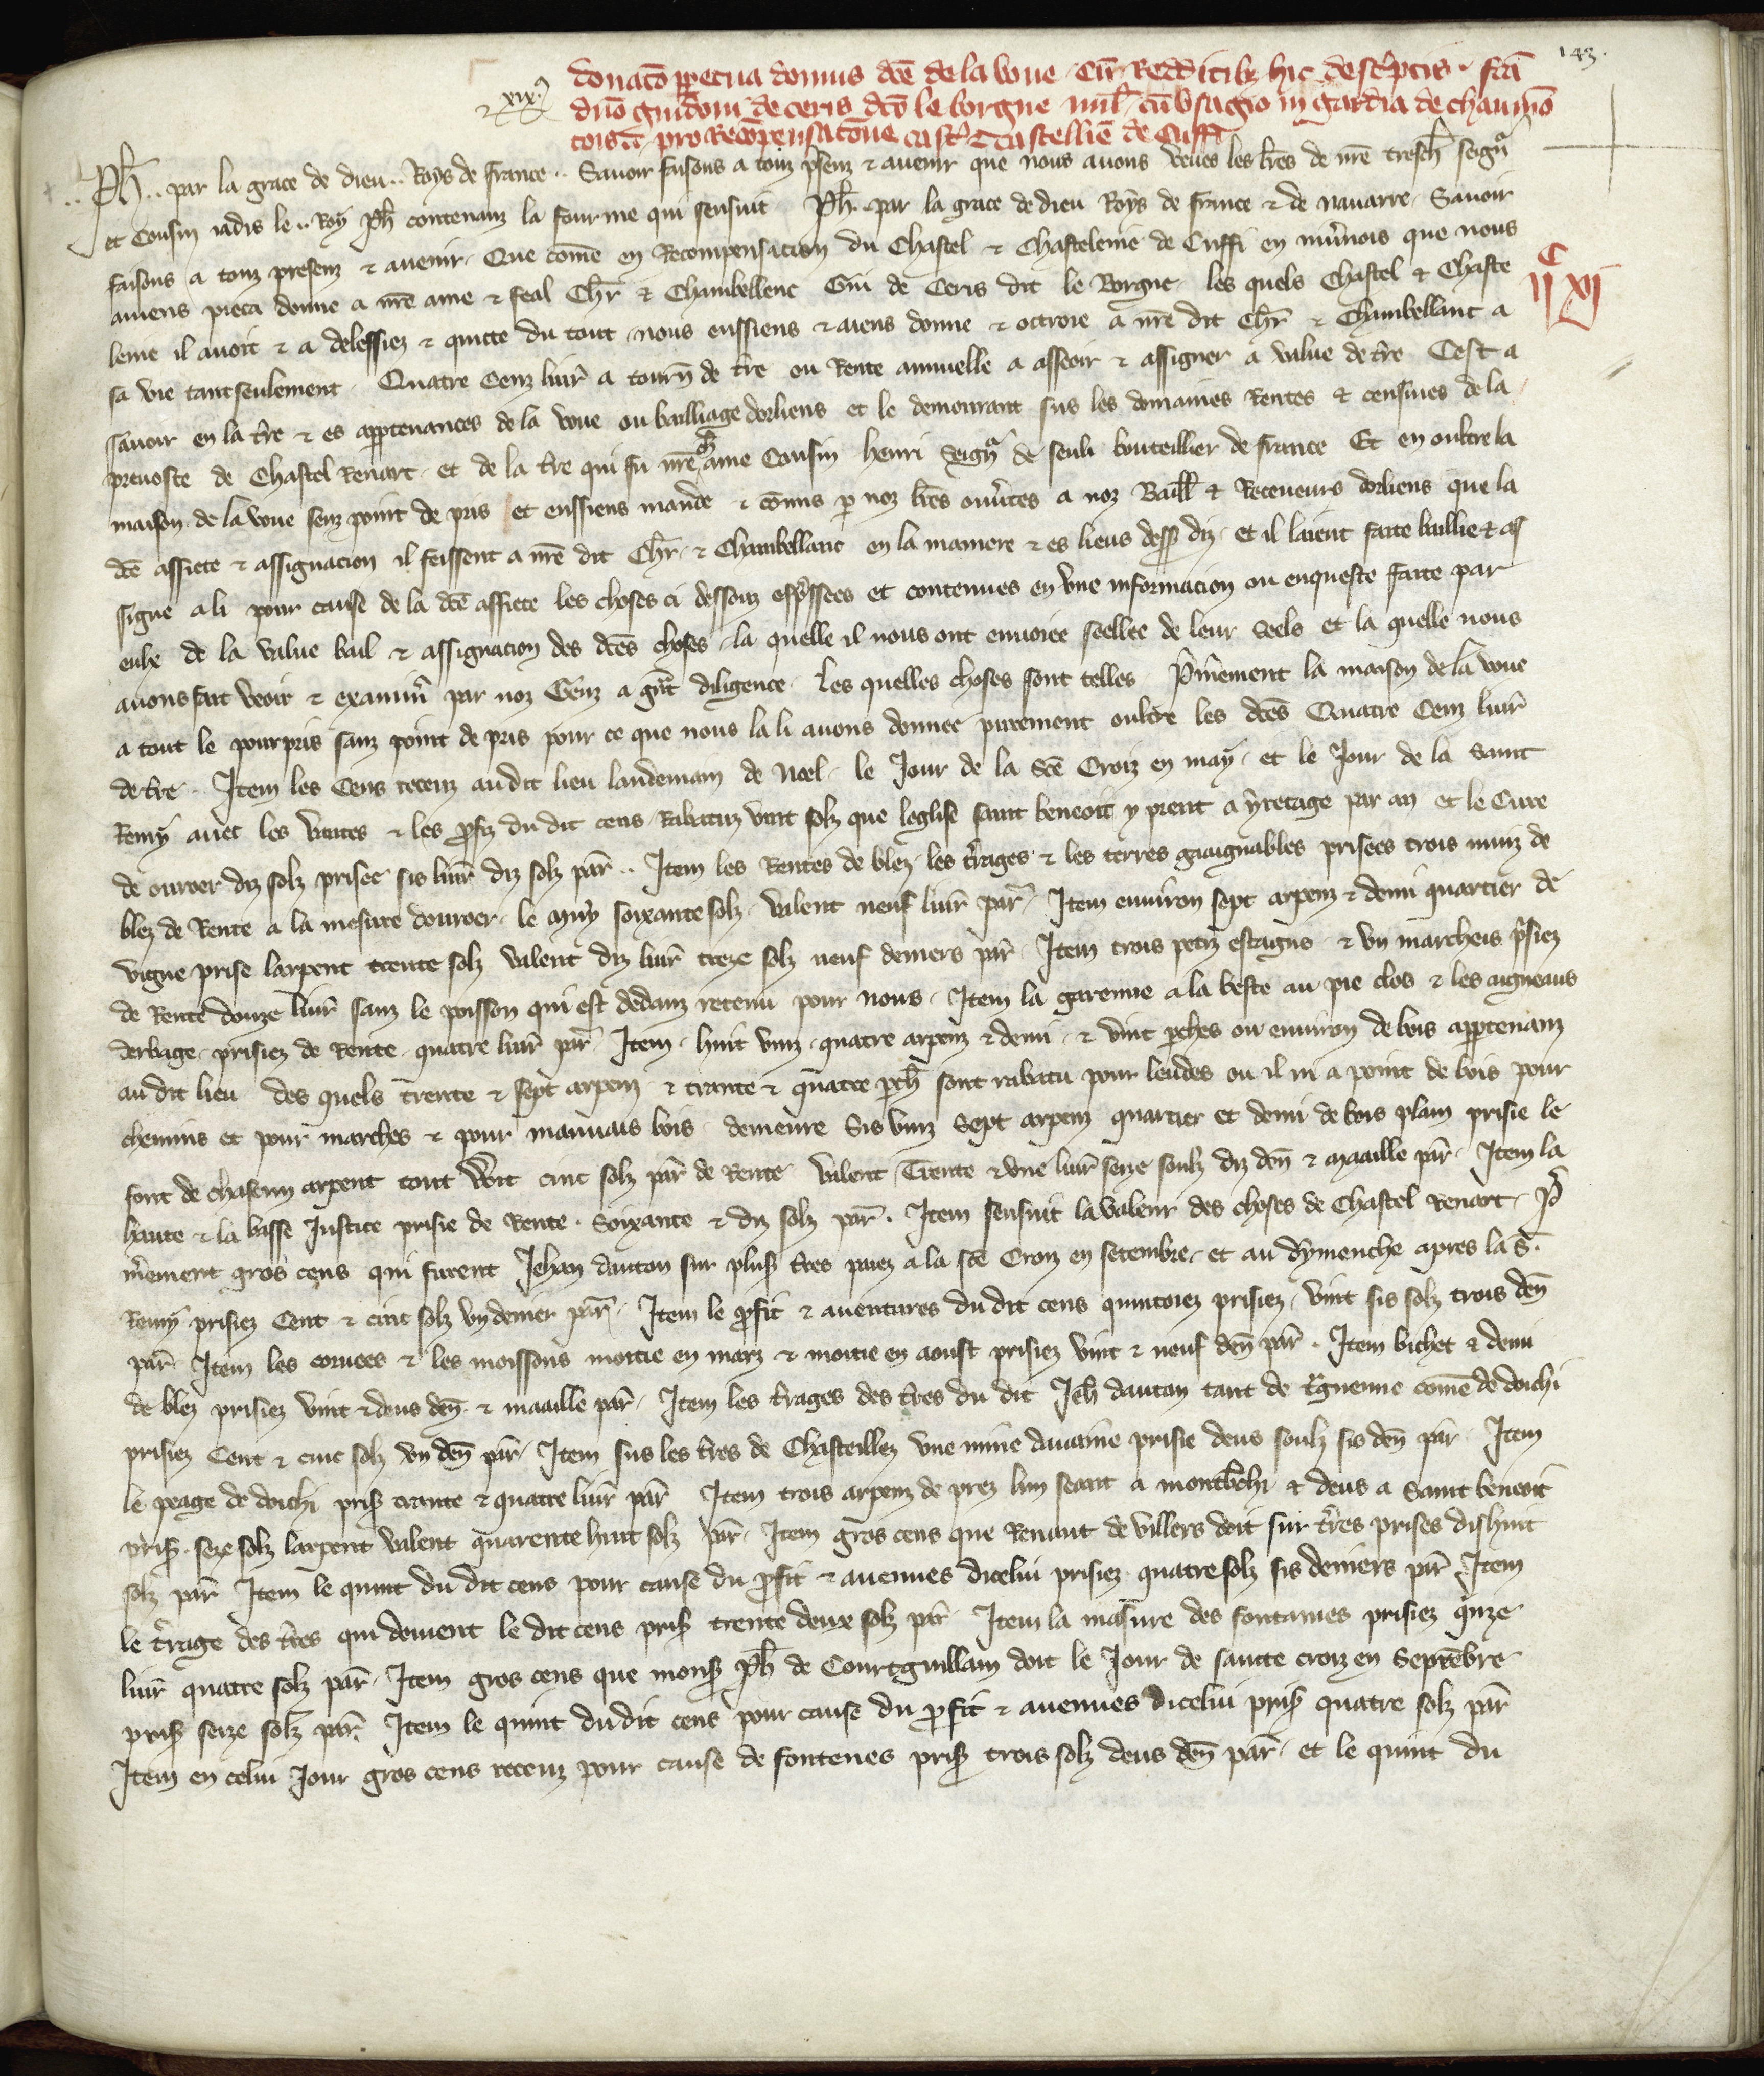 143.
donac̄o ꝑpetua domus dc̄e de la voue cū Redditibꝫ hic desc'ptis. fc̄a
xix.
dn̄o guidoni de ceris dc̄o le borgne mil' cū vsagio in gardia de chaumō
toisū pro Recōpensac̄one cast' & castellie de Cuffi
.. Ph̄.. par la grace de dieu.. Roys de france.. Sauoir faisons a touz p̄senz & auenir que nous auons veues les lr̄es de nr̄e tresch' seign̄
et Cousin iadis le.. Roy Ph̄ contenanz la fourme qui sensuit Ph̄.. par la grace de dieu Roys de france & de nauarre. Sauoir
faisons a touz presenz & auenir. Que com̄e en Recompensacion du Chastel & Chastelenie de Cuffi en niu̅nois que nous
auiens pieca donne a nr̄e ame & feal Chr̄ & Chambellenc Gui de Ceris dit le Borgne les quels Chastel & Chaste
iiᶜ xj
lenie il auoit & a delessiez & quicte du tout nous eussiens & aiens donne & octroie a nr̄e dit Chr̄ & Chambellanc a
sa vie tant seulement. Quatre Cenz liur̄ a tourn̄ de tr̄e ou Rente annuelle a asseoir & assigner a value de tr̄e Cest a
sauoir en la tr̄e & es apptenances de la voue ou bailliage dorliens et le demourant sus les domaines Rentes & censiues de la
preuoste de Chastel Renart. et de la tr̄e qui fu nr̄e ch' ame Cousin henri Seign̄ de seuli bouteillier de france Et en oultre la
maison de la voue senz point de pris et eussiens mande & cōmis p noz lr̄es ouu̅tes a noz Baill' & Receueurs dorliens que la
dc̄e assiete & assignacion il feissent a nr̄e dit Chr̄. & Chambellanc en la maniere & es lieus dess' diz. et il laient faite baillie & as
signe a li pour cause de la dc̄e assiete les choses ci dessouz exp̄ssees et contenues en vne informacion ou enqueste faite par
eulx de la value bail & assignacion des dc̄es choses. la quelle il nous ont enuoiee seellee de leur Seels et la quelle nous
auons fait veoir & examin̄ par noz Genz a gr̄t diligence. Les quelles choses sont telles P̄mierement la maison de la voue
a tout le pourpris sanz point de pris pour ce que nous la li auons donnee purement oultre les dc̄es Quatre Cenz liur̄
de tr̄e.. Item les Cens receuz audit lieu landemain de Noel. le Jour de la Sc̄e Croiz en may. et le Jour de la Saint
Remy auec les ventes & les ꝓfiz du dit cens. Rabatuz vint solz que leglise saint beneoit y prent a yretage par an et le Cure
de ouroer diz solz prisee sis liur̄ diz solz par̄.. Item les Rentes de blez. les tr̄rages & les terres gaaignables prisees trois muiz de
blez de Rente a la mesure douroer. le muy soixante solz. valent neuf liur̄ par̄. Item enuiron sept arpenz & demi quartier de
vigne prise larpent trente solz valent diz liur̄ treze solz neuf deniers par̄. Item trois petiz estangns & vn marcheis p̄siez
de Rente douze liur̄ sanz le poisson qui est dedanz retenu pour nous. Item la garenne a la beste au pie clos & les aigneaus
derbage. prisiez de Rente. quatre liur̄ par̄ Item. huit vinz. quatre arpenz & demi. & vint perches ou enuiron de bois apptenanz
au dit lieu des quels trente & sept arpenz & trante & quatre ꝑch' sont rabatu pour leudes ou il ni a point de bois pour
chemins et pour marches & pour mauuais bois. demeure Sis vinz Sept arpenz quartier et demi de bois plain prisie le
font de chascun arpent tout vuit cinc solz par̄ de Rente valent Trente & vne liur̄ seize soulz diz den̄ & maaille par̄. Item la
haute & la basse Justice prisie de Rente. Soixante & diz solz par̄. Item sensuit la valeur des choses de Chastel Renart. P̄
mierement gros cens qui furent Jehan dauton sur plus' tr̄es paiez a la sc̄e Croiz en setembre. et au dymenche apres la S.
Remy prisiez Cent & cinc solz vn denier par̄. Item le ꝓfit & auentures du dit cens quintoiez prisiez. vint sis solz trois den̄
par̄. Item les coruees & les moissons moitie en marz & moitie en aoust prisiez vint & neuf den̄ par̄. Item bichet & demi
de blez prisiez vint & deus den̄. & maaille par̄. Item les tr̄rages des tr̄es du dit Jeh' dautan tant de com̄e de doichi
prisiez Cent & cinc solz vn den̄ par̄ Item sus les tr̄es de Chasteillez vne mine dauaine prisie deus soulz sis den̄ par̄ Item
le peage de doichi pris' trante & quatre liur̄ par̄ Item trois arpenz de prez lun seant a & deus a Saint beneoit
pris'. seze solz larpent valent quarente huit solz par̄. Item gros cens que Renaut de villers doit sur tr̄es prises dishuit
solz par̄ Item le quint du dit cens pour cause du ꝓfit & auenues dicelui prisiez quatre solz sis deniers par̄ Item
le tr̄rage des tr̄es qui doiuent le dit cens pris' trente deux solz par̄. Item la masure des fontaines prisiez q̄nze
liur̄ quatre solz par̄. Item gros cens que mons' Ph̄ de Courtguillain doit le Jour de saincte croiz en Septēbre
pris' seize solz par̄. Item le quint du dit cens pour cause du ꝓfit & auenues dicelui pris' quatre solz par̄
Item en celui Jour gros cens receuz pour cause de fontenes pris' trois solz deus den̄ par̄. et le quint du